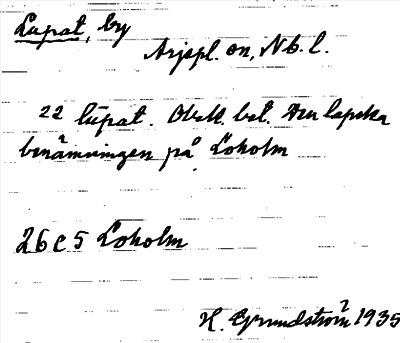 Lupat, by
Arjepl. sn, Nb. l.
22 lūpat. Obek. bet. Den lapska
benämningen på Loholm
26 e 5 Loholm
H. Grundström 1935